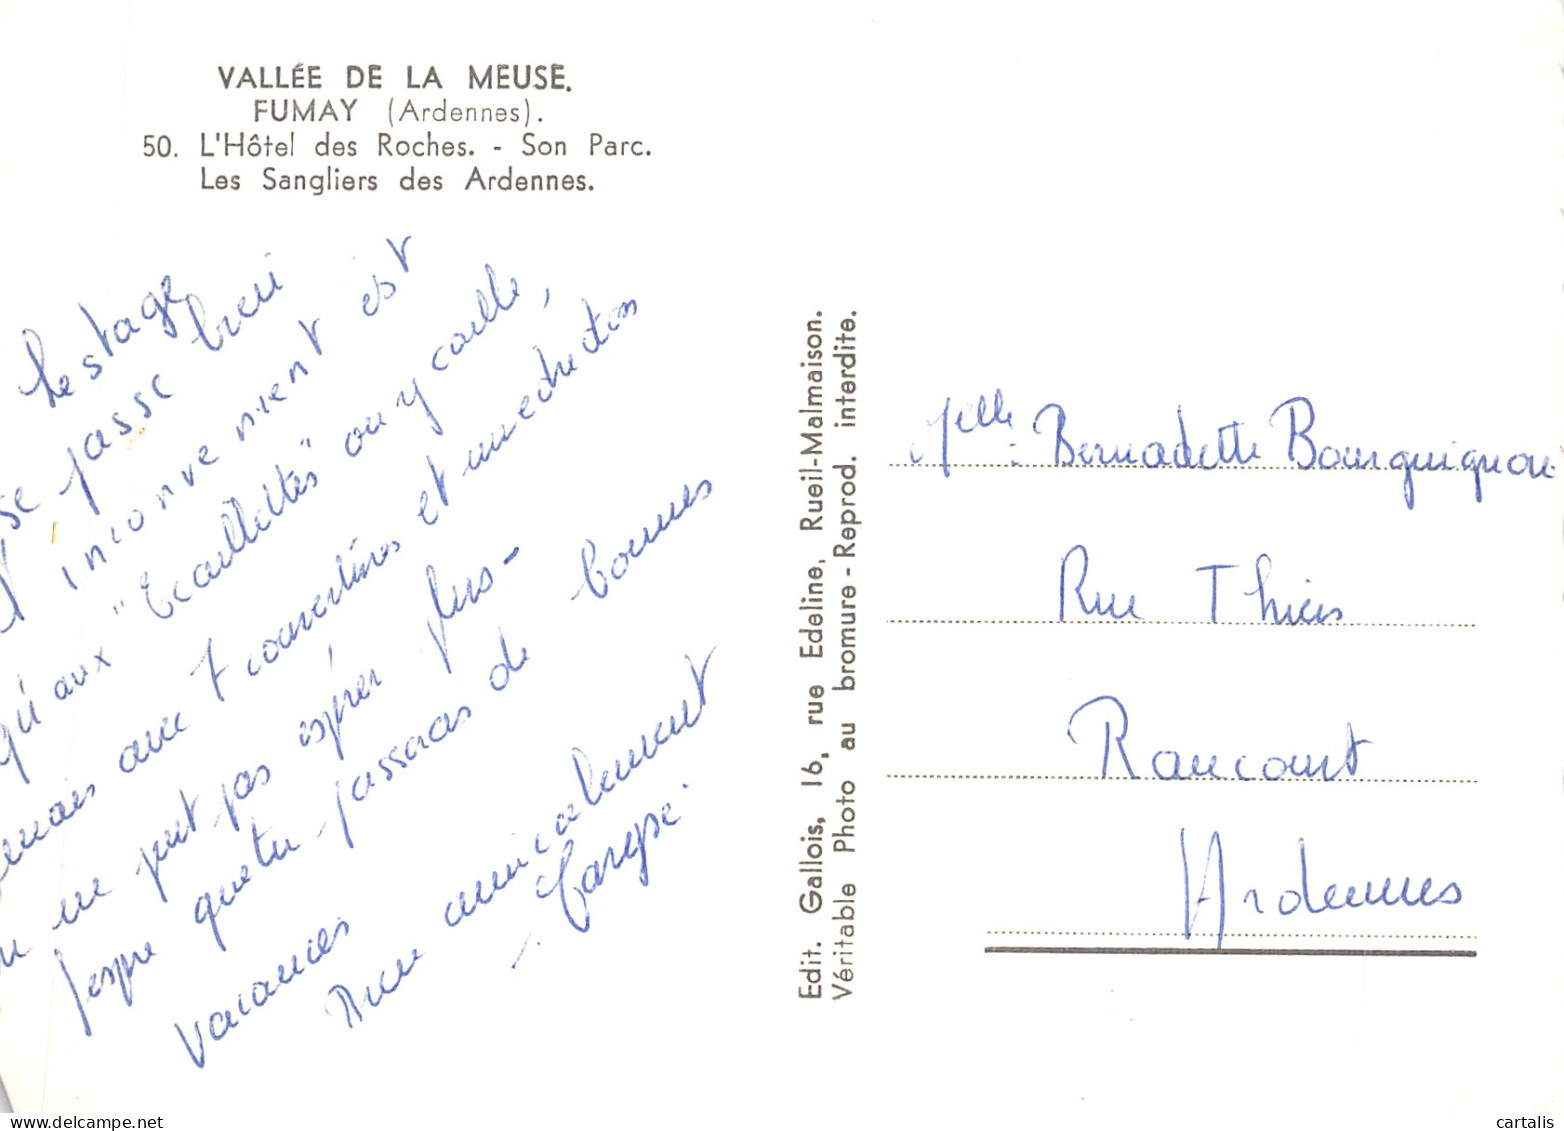 VALLÉE DE LA MEUSE.
FUMAY (Ardennes).
50. L'Hôtel des Roches. - Son Parc.
Les Sangliers des Ardennes.
Le stage
se passe bien
inconvenient est
qu'aux "Ecaillettes" on y caille,
avec 7 couvertures et un edredon
on ne peut pas espérer plus-
J'espre que tu passeras de bonnes
vacances
Bien amicalement
Melle Bernadette Bourguignon
Rue Thiers
Raucourt
Ardennes
Edit. Gallois, 16, rue Edeline, Rueil-Malmaison.
Véritable Photo au bromure - Reprod. interdite.
cartalis